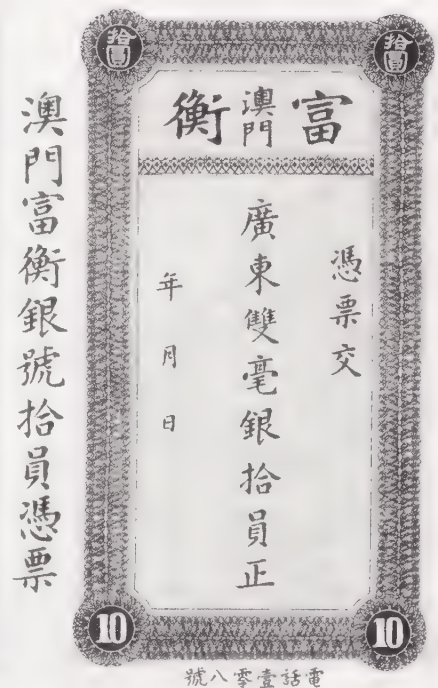 拾圓
拾圓
富澳門衡
憑票交
廣東雙毫銀拾員正
年月日
10
10
電話壹零八號
澳門富衡銀號拾員憑票